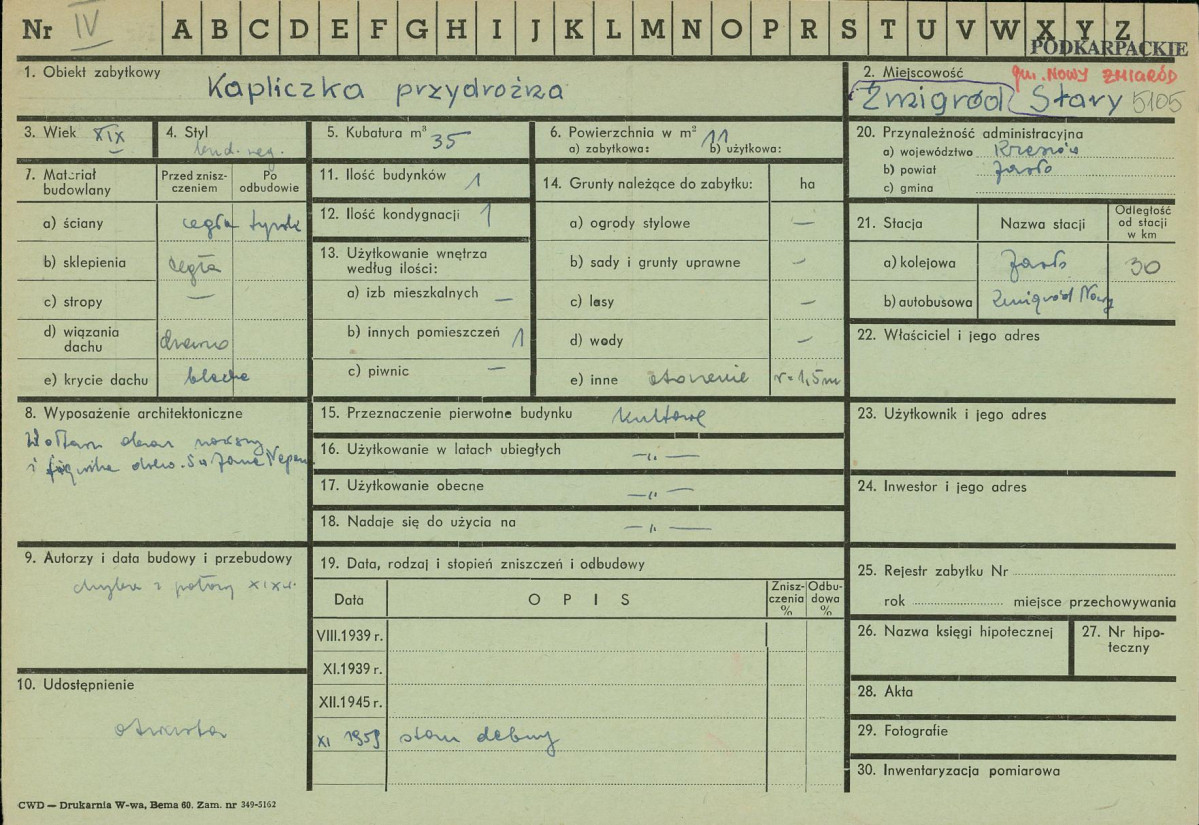 Nr IV A B C D E F G H I J K L M N O P R S T U V W X Y Z
PODKARPACKIE
1. Obiekt zabytkowy
Kapliczka przydrożna
2. Miejscowość gm. NOWY ŻMIGRÓD
Żmigród Stary 5105
3. Wiek XIX
4. Styl
bud. reg.
5. Kubatura m³ 35
6. Powierzchnia w m² 11
a) zabytkowa: b) użytkowa:
7. Materiał budowlany
Przed zniszczeniem
Po odbudowie
a) ściany cegła tynk
b) sklepienia cegła
c) stropy —
d) wiązania dachu drewno
e) krycie dachu blacha
8. Wyposażenie architektoniczne
9. Autorzy i data budowy i przebudowy
chyba z połowy XIX w.
10. Udostępnienie
otwarta
11. Ilość budynków 1
12. Ilość kondygnacji 1
13. Użytkowanie wnętrza według ilości:
a) izb mieszkalnych —
b) innych pomieszczeń 1
c) piwnic —
14. Grunty należące do zabytku: ha
a) ogrody stylowe —
b) sady i grunty uprawne —
c) lasy —
d) wody —
e) inne otoczenie r = 1,5 m
15. Przeznaczenie pierwotne budynku kultowe
16. Użytkowanie w latach ubiegłych —„—
17. Użytkowanie obecne —„—
18. Nadaje się do użycia na —„—
19. Data, rodzaj i stopień zniszczeń i odbudowy
Data
O P I S
Zniszczenia %
Odbudowa %
VIII.1939 r.
XI.1939 r.
XII.1945 r.
XI 1959 stan dobry
20. Przynależność administracyjna
a) województwo Rzeszów
b) powiat Jasło
c) gmina
21. Stacja
Nazwa stacji
Odległość od stacji w km
a) kolejowa Jasło 30
b) autobusowa Żmigród Nowy
22. Właściciel i jego adres
23. Użytkownik i jego adres
24. Inwestor i jego adres
25. Rejestr zabytku Nr
rok miejsce przechowywania
26. Nazwa księgi hipotecznej
27. Nr hipoteczny
28. Akta
29. Fotografie
30. Inwentaryzacja pomiarowa
CWD — Drukarnia W-wa, Bema 60. Zam. nr 349-5162